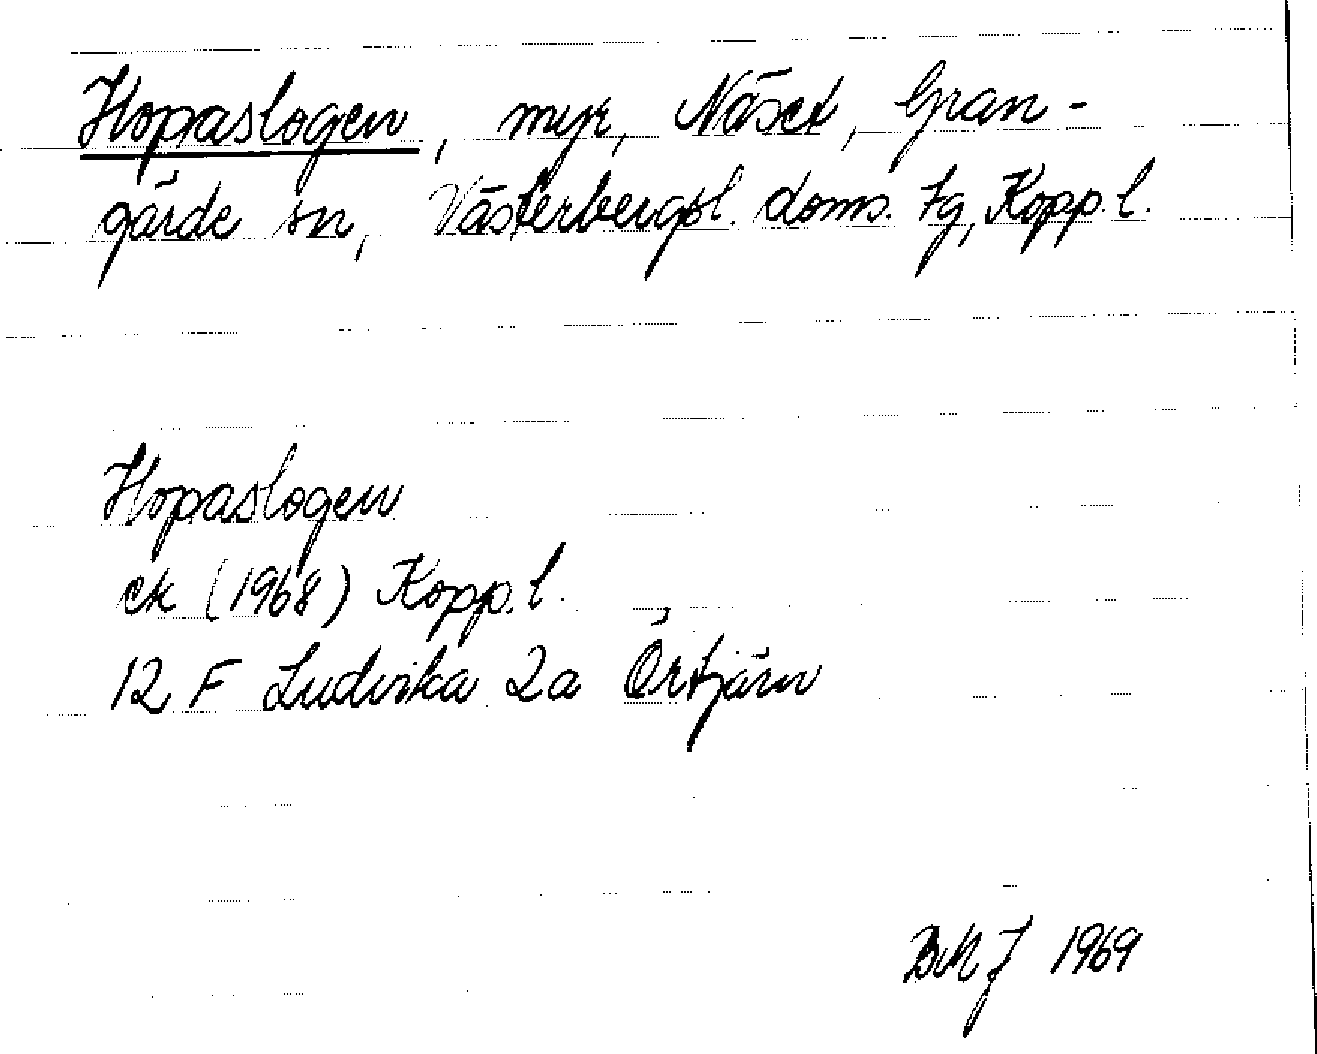 Hopaslogen, myr, Näset, Gran-
gärde sn, Västerbergsl. doms. tg, Kopp. l.
Hopaslogen
ek (1968) Kopp. l.
12 F Ludvika 2a Örtjärn
BMJ 1969